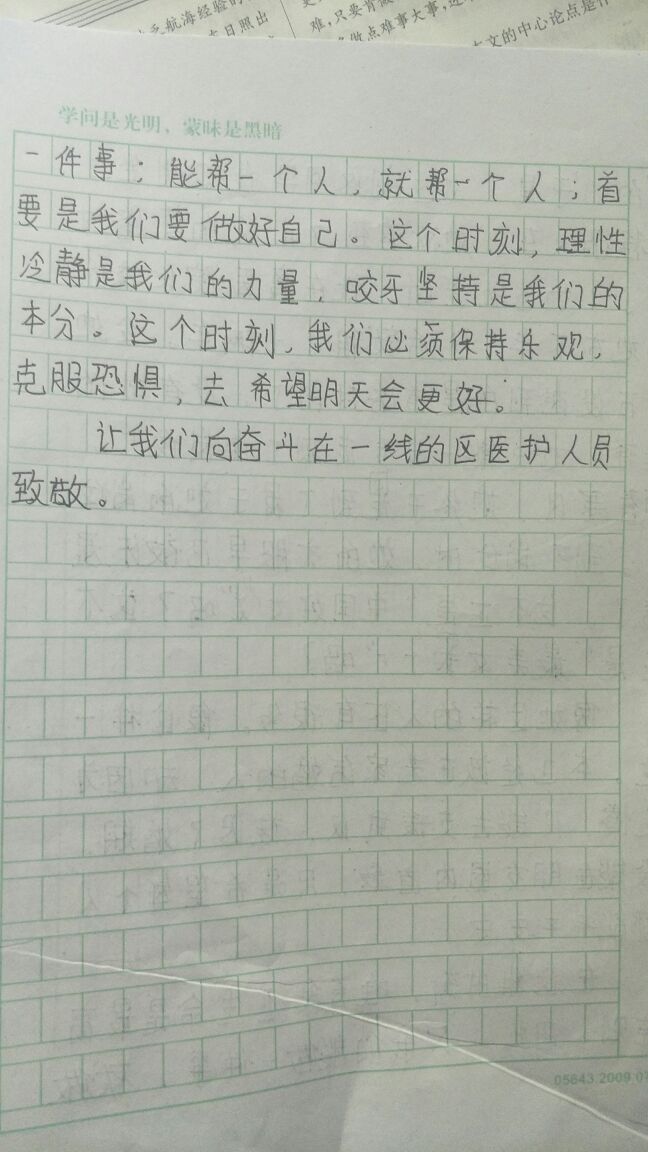 之航海经验的
本日照出
难,只要肯做
做点难事大事,
文的中心论点是什
学问是光明，蒙昧是黑暗
一件事；能帮一个人，就帮一个人；首
要是我们要做好自己。这个时刻，理性
冷静是我们的力量，咬牙坚持是我们的
本分。这个时刻，我们必须保持乐观，
克服恐惧，去希望明天会更好。
让我们向奋斗在一线的区医护人员
致敬。
05643.2009.07